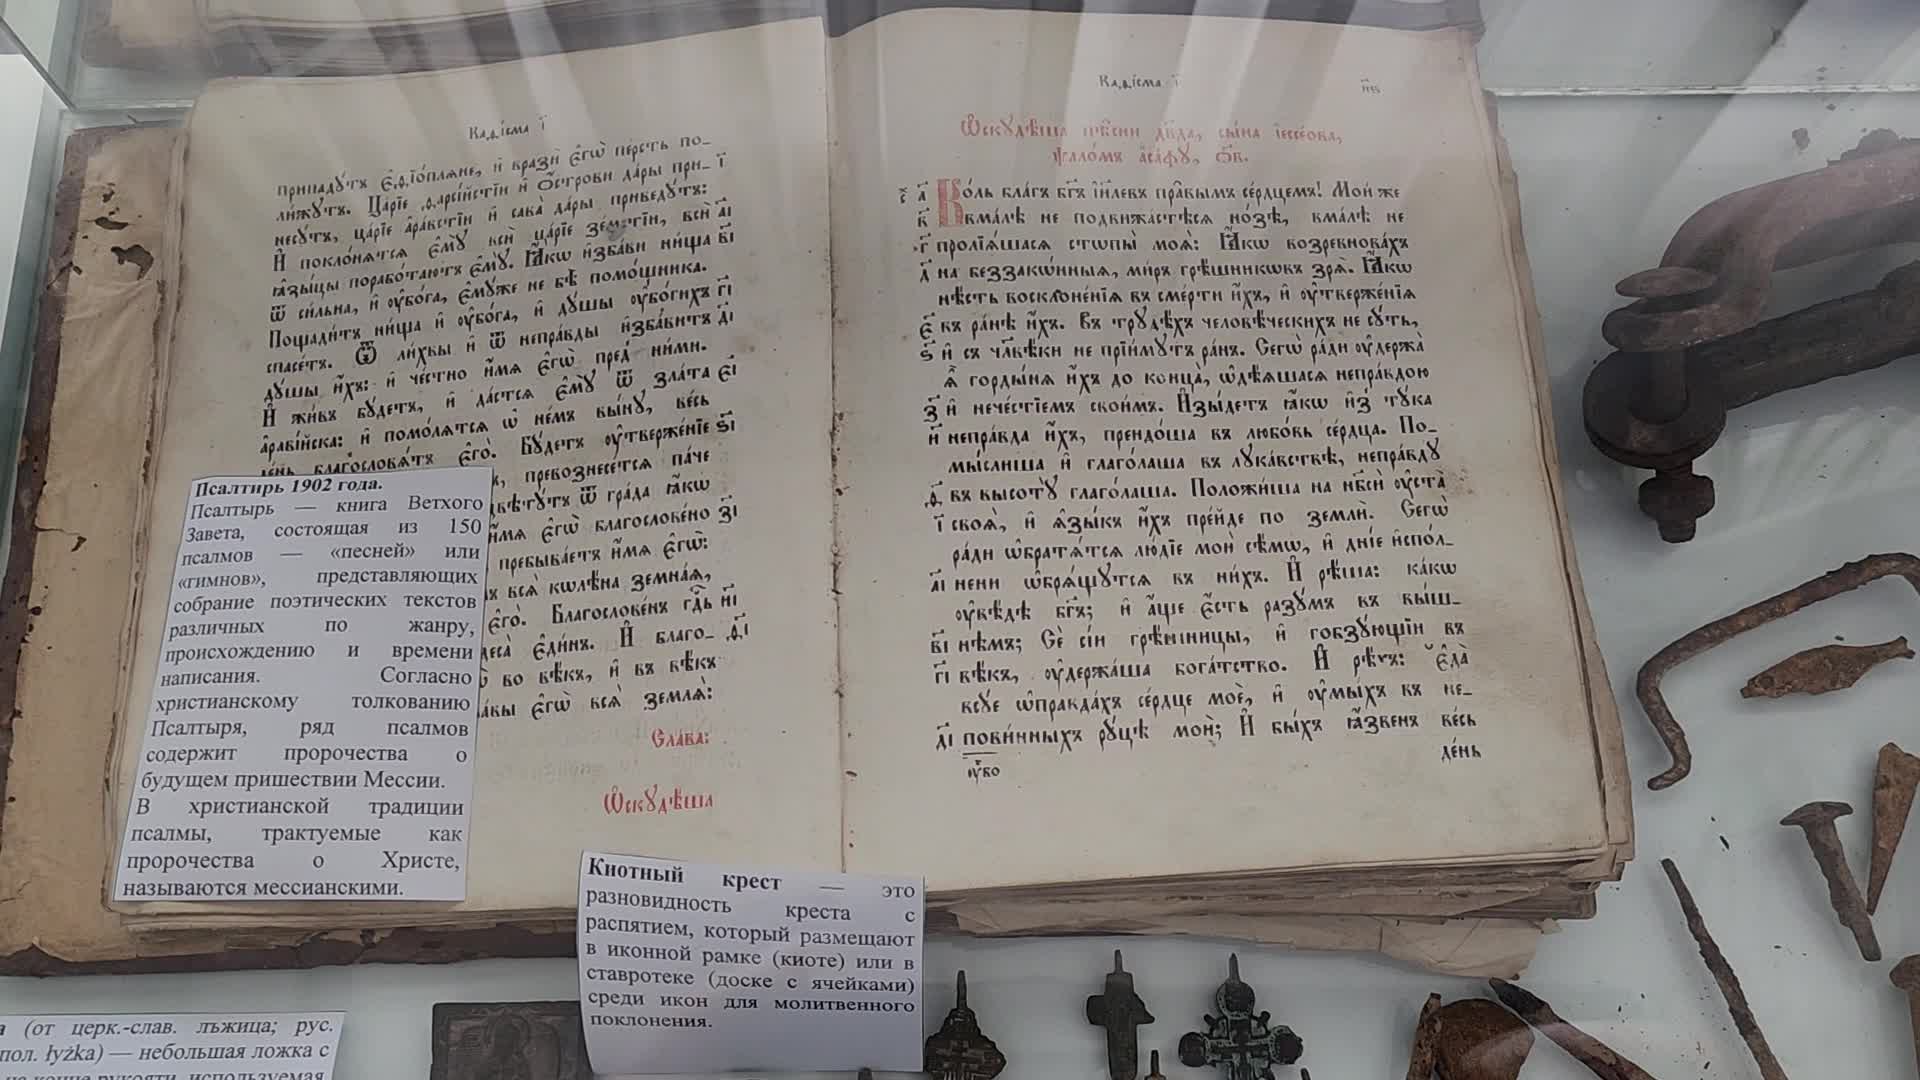 Каѳісма і҃
припадꙋтъ є҆ѳїо́плѧне, и҆ вразѝ є҆гѡ̀ пе́рсть по-
ли́жꙋтъ. Ца́рїе ѳарсі́йстїи и҆ ѻ҆́строви да́ры при- і҃
несꙋ́тъ, ца́рїе а҆ра́встїи и҆ сава̀ да́ры приведꙋ́тъ:
И҆ покло́нѧтсѧ є҆мꙋ̀ всѝ ца́рїе зе́мстїи, всѝ а҃і
ꙗ҆зы́цы порабо́таютъ є҆мꙋ̀. Ꙗ҆́кѡ и҆зба́ви ни́ща в҃і
ѿ си́льна, и҆ ᲂу҆бо́га, є҆мꙋ́же не бѣ̀ помо́щника.
Пощади́тъ ни́ща и҆ ᲂу҆бо́га, и҆ дꙋ́шы ᲂу҆бо́гихъ г҃і
спасе́тъ. Ѿ ли́хвы и҆ ѿ непра́вды и҆зба́витъ д҃і
дꙋ́шы и҆́хъ: и҆ че́стно и҆́мѧ є҆гѡ̀ пред̾ ни́ми.
И҆ жи́въ бꙋ́детъ, и҆ да́стсѧ є҆мꙋ̀ ѿ зла́та є҃і
а҆раві́йска: и҆ помо́лѧтсѧ ѡ҆ не́мъ вы́нꙋ, ве́сь
де́нь благословѧ́тъ є҆го̀. Бꙋ́детъ ᲂу҆твержде́нїе ѕ҃і
превознесе́тсѧ па́че
ѿ гра́да ꙗ҆́кѡ
и҆́мѧ є҆гѡ̀ благослове́но з҃і
пребыва́етъ и҆́мѧ є҆гѡ̀:
всѧ̑ кѡлѣ́на земна̑ѧ,
є҆го̀. Благослове́нъ гд҇ь и҃і
є҆ди́нъ. И҆ благо- ѳ҃і
во вѣ́къ, и҆ въ вѣ́къ
є҆гѡ̀ всѧ̀ землѧ̀:
Сла́ва:
Ѡ҆скꙋдѣ́ша
Псалтирь 1902 года.
Псалтырь — книга Ветхого
Завета, состоящая из 150
псалмов — «песней» или
«гимнов», представляющих
собрание поэтических текстов
различных по жанру,
происхождению и времени
написания. Согласно
христианскому толкованию
Псалтыря, ряд псалмов
содержит пророчества о
будущем пришествии Мессии.
В христианской традиции
псалмы, трактуемые как
пророчества о Христе,
называются мессианскими.
Каѳісма і҃ п҃ѕ
Ѡ҆скꙋдѣ́ша пѣ̑сни дв҃да, сы́на і҆ессе́ова,
ѱало́мъ а҆са́фꙋ, ѻ҃в.
а҃ Ко́ль бл҃гъ бг҃ъ і҆и҃левъ пра̑вымъ се́рдцемъ! Мои́ же
в҃ вма́лѣ не подвижа́стѣсѧ но́зѣ, вма́лѣ не
г҃ пролїѧ́шасѧ стѡпы̀ моѧ̑: Ꙗ҆́кѡ возревнова́хъ
д҃ на беззакѡ́нныѧ, ми́ръ грѣ́шникѡвъ зрѧ̀. Ꙗ҆́кѡ
нѣ́сть восклоне́нїѧ въ сме́рти и҆́хъ, и҆ ᲂу҆твержде́нїѧ
є҃ въ ра́нѣ и҆́хъ. Въ трꙋдѣ́хъ человѣ́ческихъ не сꙋ́ть,
ѕ҃ и҆ съ чл҃вѣ́ки не прїи́мꙋтъ ра́нъ. Сегѡ̀ ра́ди ᲂу҆держа̀
ѧ҆̀ горды́нѧ и҆́хъ до конца̀, ѡ҆дѣ́ѧшасѧ непра́вдою
з҃ и҆ нече́стїемъ свои́мъ. И҆зы́детъ ꙗ҆́кѡ и҆з̾ тꙋ́ка
и҃ непра́вда и҆́хъ, преидо́ша въ любо́вь се́рдца. По-
мы́слиша и҆ глаго́лаша въ лꙋка́вствѣ, непра́вдꙋ
ѳ҃ въ высотꙋ̀ глаго́лаша. Положи́ша на нб҃сѝ ᲂу҆ста̀
і҃ своѧ̑, и҆ ѧ҆зы́къ и҆́хъ пре́йде по землѝ. Сегѡ̀
ра́ди ѡ҆братѧ́тсѧ лю́дїе моѝ сѣ́мѡ, и҆ дні́е и҆спо́л-
а҃і нени ѡ҆брѧ́щꙋтсѧ въ ни́хъ. И҆ рѣ́ша: ка́кѡ
ᲂу҆вѣ́дѣ бг҃ъ; и҆ а҆́ще є҆́сть ра́зꙋмъ въ вы́ш-
в҃і нѣмъ; Сѐ сі́и грѣ̑шницы, и҆ гобзꙋ́ющїи въ
г҃і вѣ́къ, ᲂу҆держа́ша бога́тство. И҆ рѣ́хъ: є҆да̀
всꙋ́е ѡ҆правда́хъ се́рдце моѐ, и҆ ᲂу҆мы́хъ въ не-
д҃і пови́нныхъ рꙋ́цѣ моѝ; И҆ бы́хъ ꙗ҆́звенъ ве́сь
де́нь
ᲂу҆́бо
Киотный крест — это
разновидность креста с
распятием, который размещают
в иконной рамке (киоте) или в
ставротеке (доске с ячейками)
среди икон для молитвенного
поклонения.
(от церк.-слав. лъжица; рус.
пол. łyżka) — небольшая ложка с
рукояти, используемая